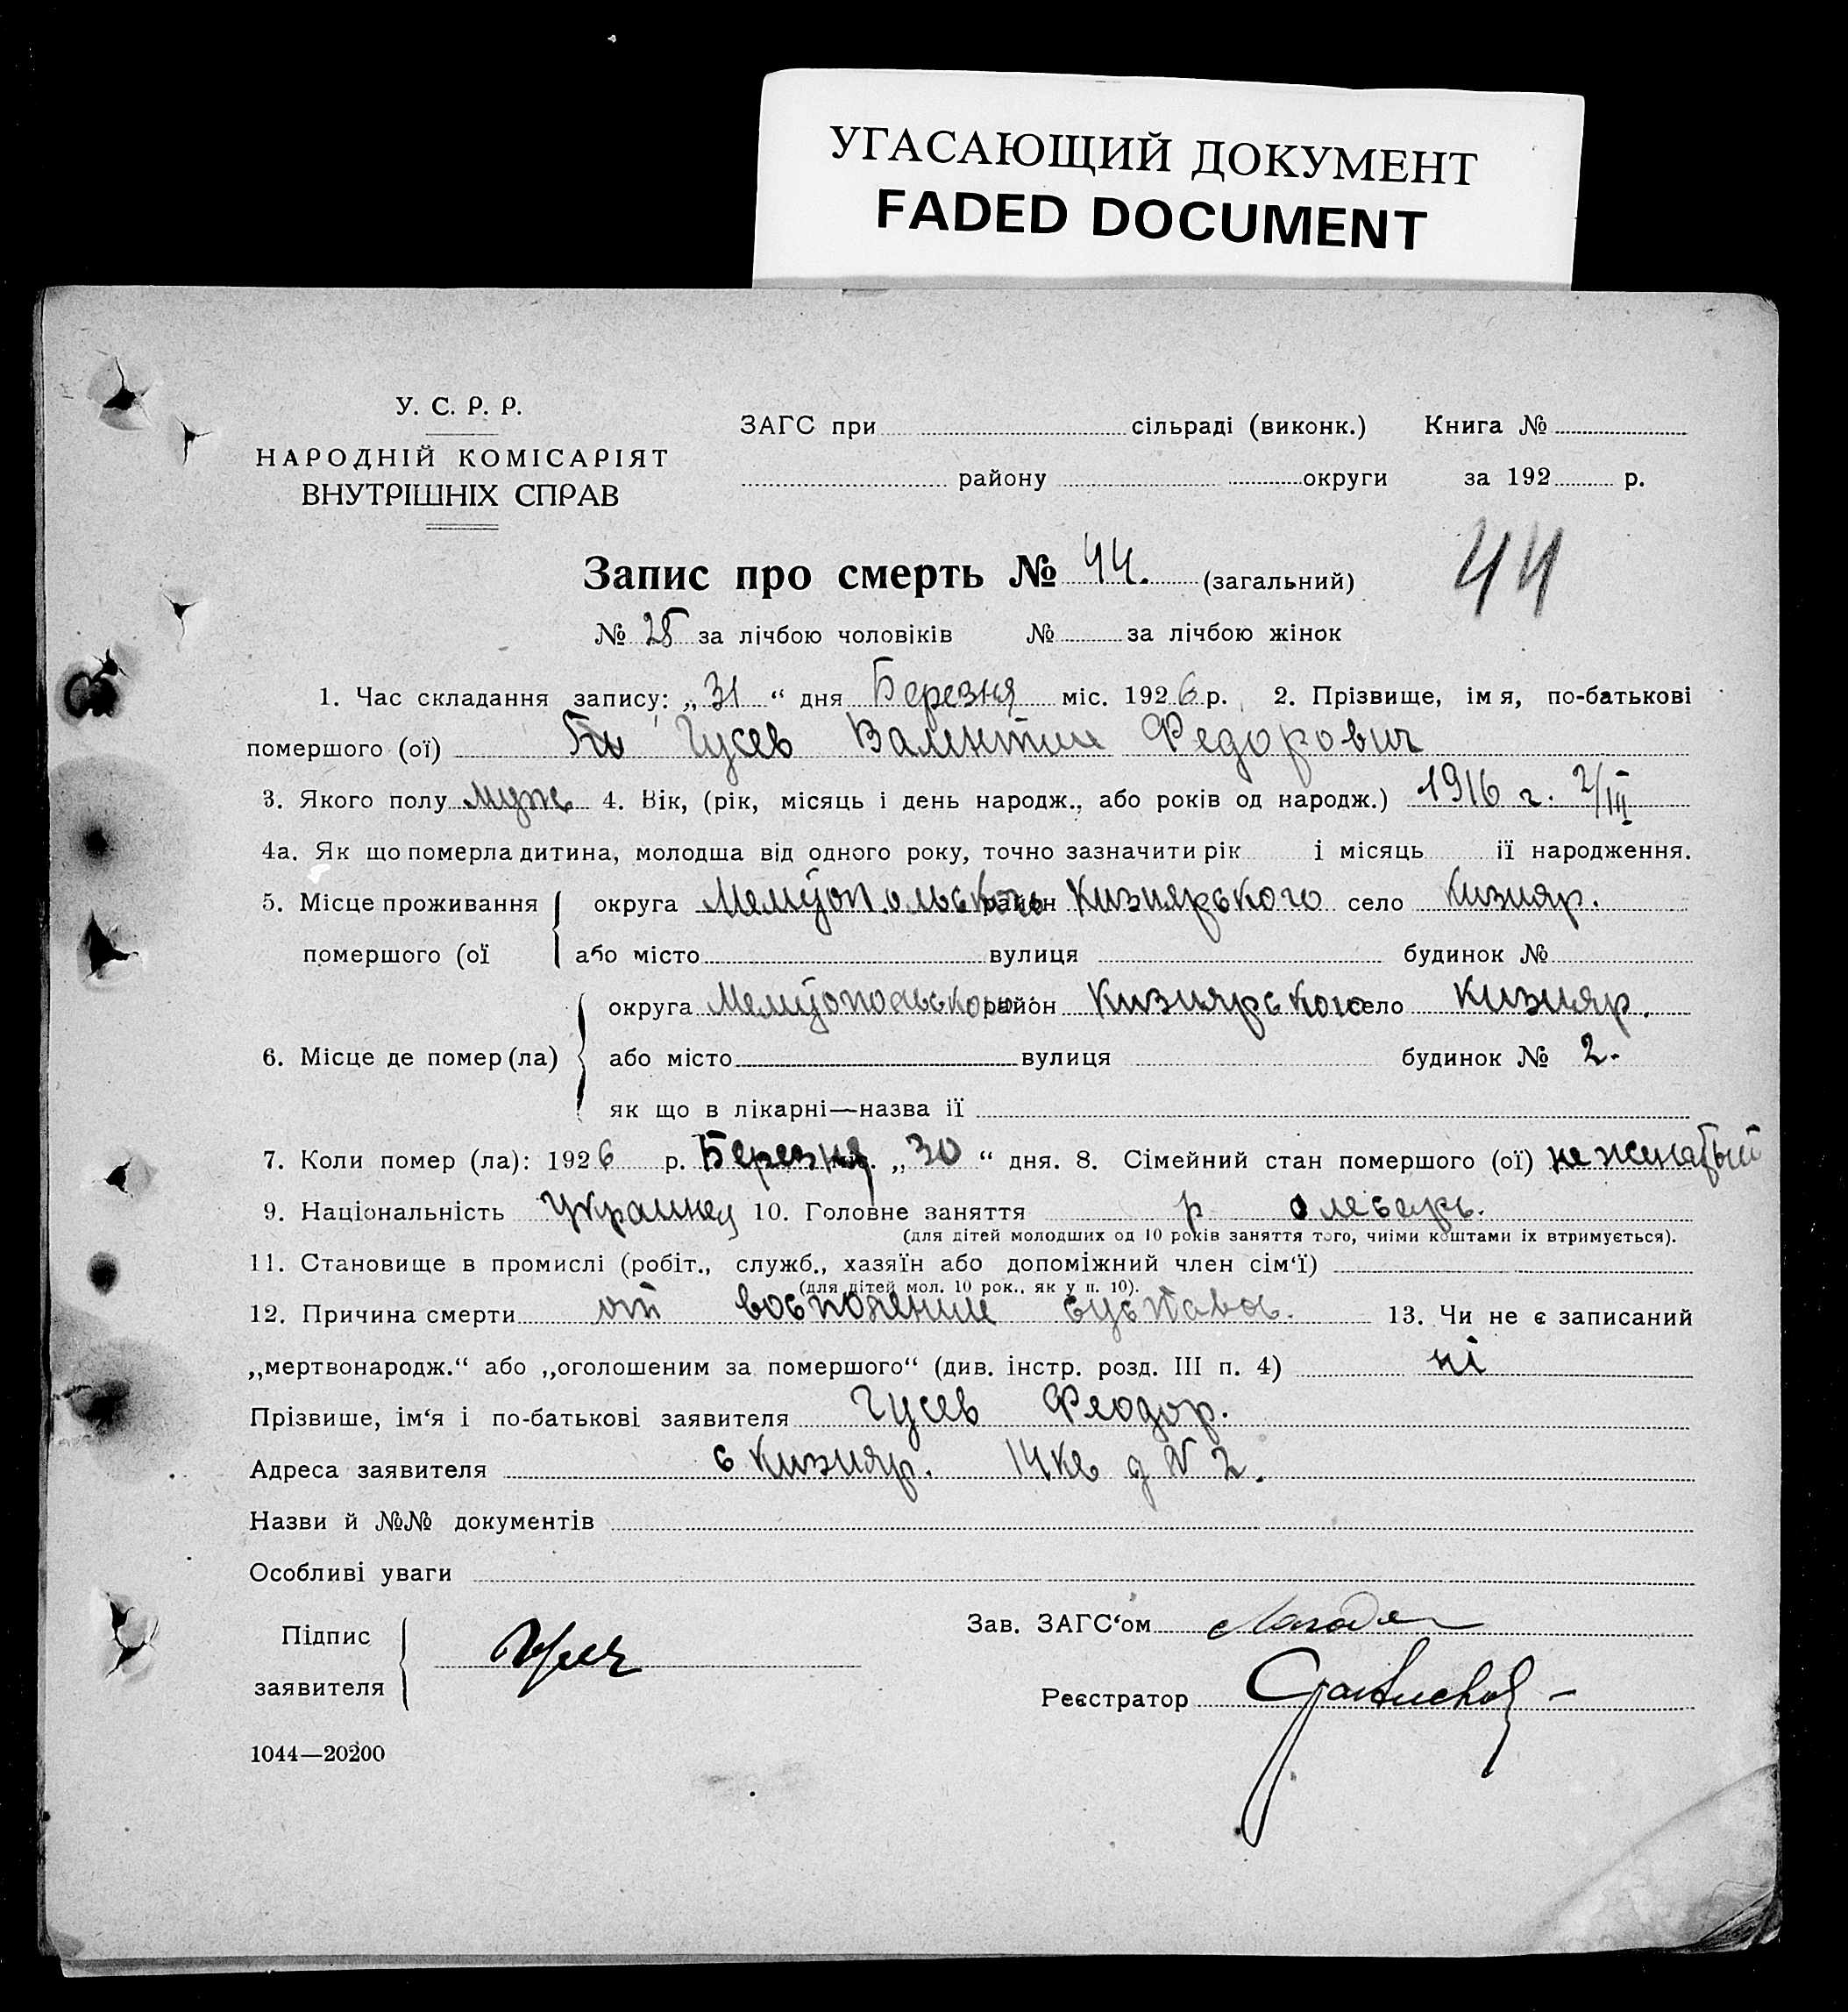 УГАСАЮЩИЙ ДОКУМЕНТ
FADED DOCUMENT
У. С. Р. Р.
НАРОДНІЙ КОМІСАРІЯТ
ВНУТРІШНІХ СПРАВ
ЗАГС при сільраді (виконк.) Книга №
району округи за 192 р.
Запис про смерть № 44. (загальний) 44
№ 25 за лічбою чоловіків № за лічбою жінок
1. Час складання запису: „31“ дня Березня міс. 1926 р. 2. Прізвище, імя, по-батькові
помершого (ої) Гусев Валентин Федорович
3. Якого полу муж 4. Вік, (рік, місяць і день народж., або років од народж.) 1916 г. 2/III
4а. Як що померла дитина, молодша від одного року, точно зазначити рік і місяць її народження.
5. Місце проживання округа Мелитопольського район Кизиярського село Кизияр.
помершого (ої або місто вулиця будинок №
округа Мелитопольського район Кизиярського село Кизияр.
6. Місце де помер (ла) або місто вулиця будинок № 2.
як що в лікарні—назва її
7. Коли помер (ла): 1926 р. Березня „30“ дня. 8. Сімейний стан помершого (ої) не женатый
9. Національність Украинец 10. Головне заняття р слесарь.
(для дітей молодших од 10 років заняття того, чиїми коштами їх втримується).
11. Становище в промислі (робіт., служб., хазяїн або допоміжний член сім‘ї)
(для дітей мол. 10 рок., як у п. 10).
12. Причина смерти от восполение сустава. 13. Чи не є записаний
„мертвонародж.“ або „оголошеним за помершого“ (див. інстр. розд. III п. 4) ні
Прізвише, ім‘я і по-батькові заявителя Гусев Феодор.
Адреса заявителя с Кизияр. 14 кв д N 2.
Назви й №№ документів
Особливі уваги
Підпис
заявителя
Зав. ЗАГС‘ом
Реєстратор
1044—20200